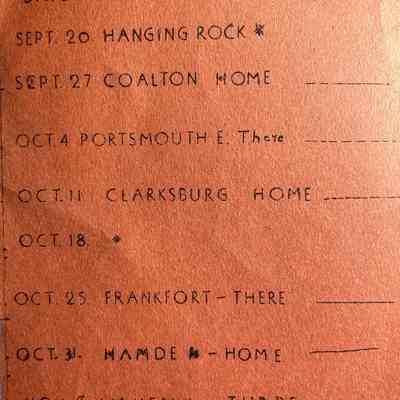 SEPT. 20 HANGING ROCK *
SEPT. 27 COALTON HOME
OCT. 4 PORTSMOUTH E. There
OCT. 11 CLARKSBURG HOME
OCT. 18. *
OCT. 25. FRANKFORT - THERE
OCT. 31. HAMDEN - HOME